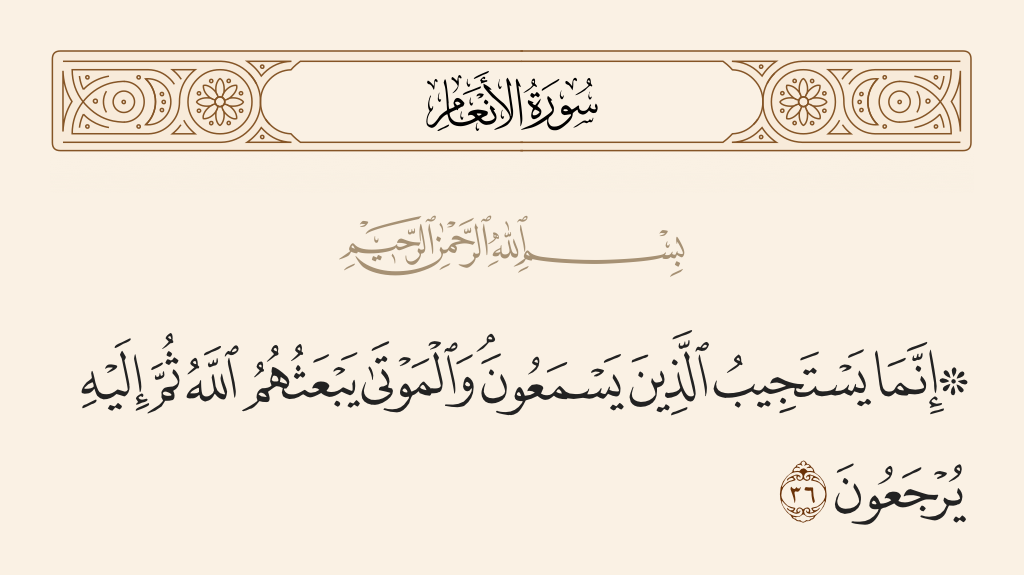 سُورَةُ الأَنْعَامِ
بِسْمِ ٱللَّهِ ٱلرَّحْمَٰنِ ٱلرَّحِيمِ
۞إِنَّمَا يَسْتَجِيبُ ٱلَّذِينَ يَسْمَعُونَۘ وَٱلْمَوْتَىٰ يَبْعَثُهُمُ ٱللَّهُ ثُمَّ إِلَيْهِ
يُرْجَعُونَ ٣٦